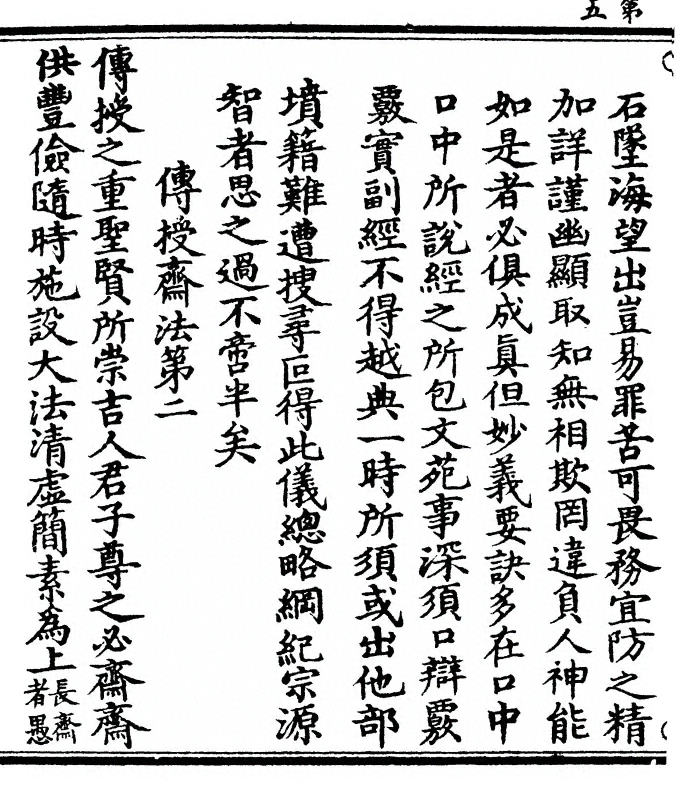 第五
石墜海望出豈易罪苦可畏務宜防之精
加詳謹幽顯取知無相欺罔違負人神能
如是者必俱成眞但妙義要訣多在口中
口中所說經之所包文苑事深須口辯覈
覈實副經不得越典一時所須或出他部
墳籍難遭搜尋叵得此儀總略綱紀宗源
智者思之過不啻半矣
傳授齋法第二
傳授之重聖賢所崇吉人君子尊之必齋齋
供豐儉隨時施設大法清虛簡素為上長齋
者愚